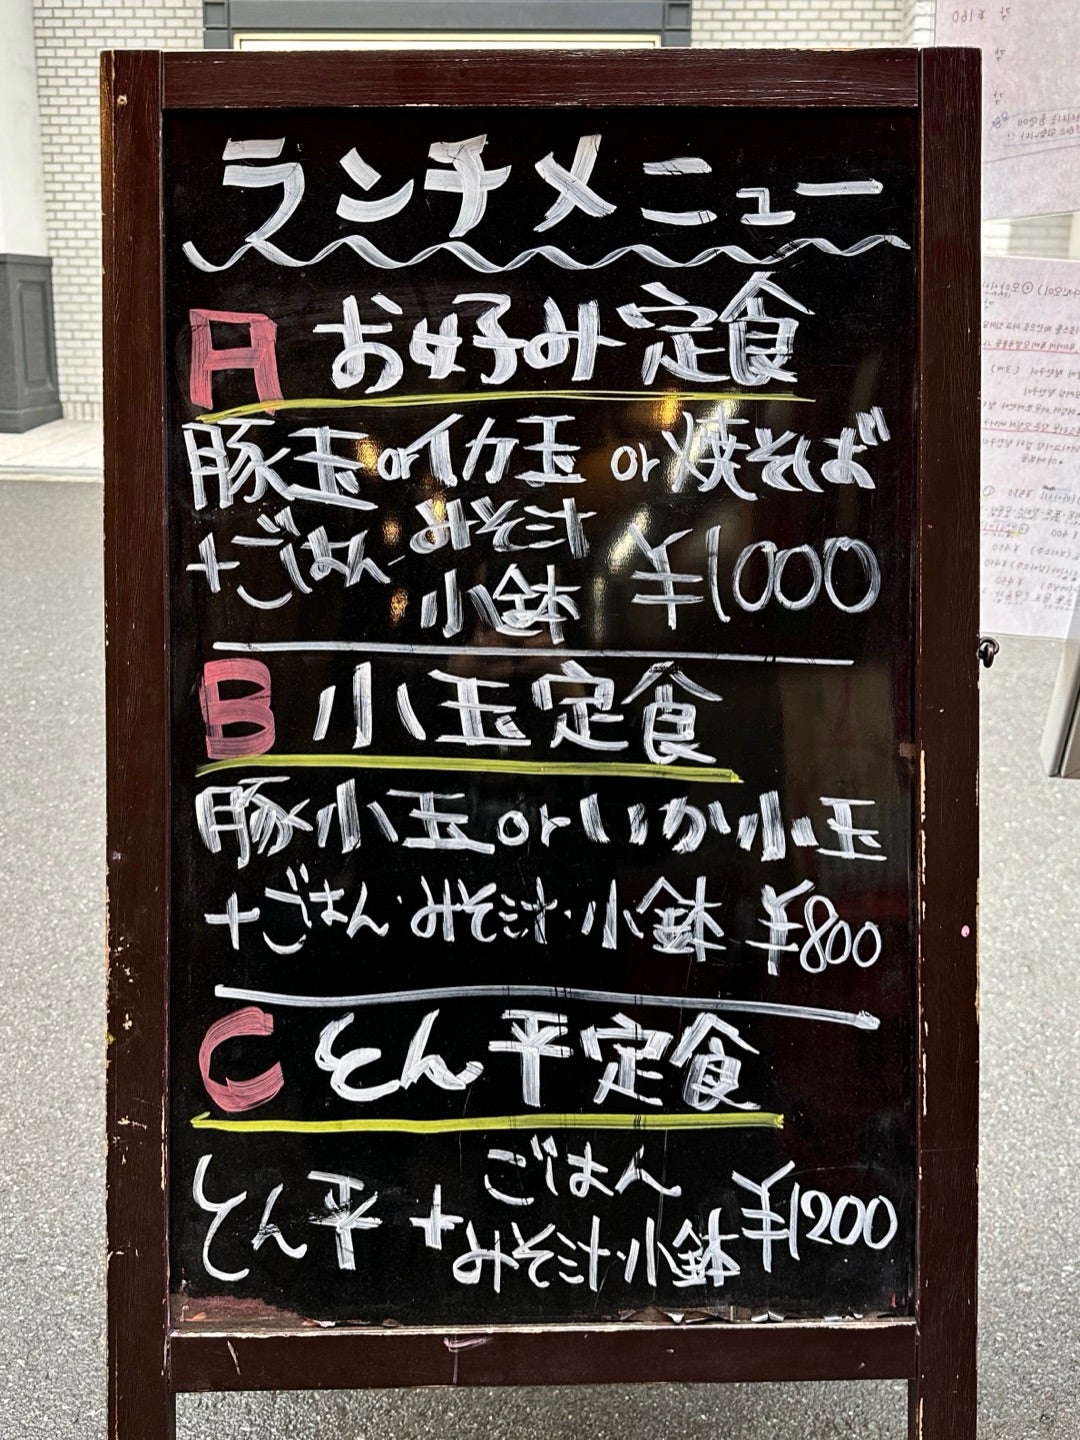 ランチメニュー
A お好み定食
豚玉orイカ玉 or 焼そば
+ごはん・みそ汁
小鉢 ¥1000
B 小玉定食
豚小玉orいか小玉
+ごはん・みそ汁・小鉢 ¥800
C とん平定食
とん平+ごはん
みそ汁・小鉢 ¥1200